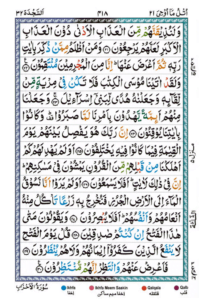 اُتْلُ مَآ اُوْحِیَ ٢١
٣١٨
اَلسَّجْدَة ٣٢
وَلَنُذِيْقَنَّهُمْ مِّنَ الْعَذَابِ الْاَدْنٰى دُوْنَ الْعَذَابِ
الْاَكْبَرِ لَعَلَّهُمْ يَرْجِعُوْنَ وَمَنْ اَظْلَمُ مِمَّنْ ذُكِّرَ بِاٰيٰتِ
رَبِّهٖ ثُمَّ اَعْرَضَ عَنْهَا اِنَّا مِنَ الْمُجْرِمِيْنَ مُنْتَقِمُوْنَ
وَلَقَدْ اٰتَيْنَا مُوْسَى الْكِتٰبَ فَلَا تَكُنْ فِيْ مِرْيَةٍ مِّنْ
لِّقَآئِهٖ وَجَعَلْنٰهُ هُدًى لِّبَنِيْٓ اِسْرَآءِيْلَ وَجَعَلْنَا
مِنْهُمْ اَئِمَّةً يَّهْدُوْنَ بِاَمْرِنَا لَمَّا صَبَرُوْا وَكَانُوْا
بِاٰيٰتِنَا يُوْقِنُوْنَ اِنَّ رَبَّكَ هُوَ يَفْصِلُ بَيْنَهُمْ يَوْمَ
الْقِيٰمَةِ فِيْمَا كَانُوْا فِيْهِ يَخْتَلِفُوْنَ اَوَلَمْ يَهْدِ لَهُمْ كَمْ
اَهْلَكْنَا مِنْ قَبْلِهِمْ مِّنَ الْقُرُوْنِ يَمْشُوْنَ فِيْ مَسٰكِنِهِمْ
اِنَّ فِيْ ذٰلِكَ لَاٰيٰتٍ اَفَلَا يَسْمَعُوْنَ اَوَلَمْ يَرَوْا اَنَّا نَسُوْقُ
الْمَآءَ اِلَى الْاَرْضِ الْجُرُزِ فَنُخْرِجُ بِهٖ زَرْعًا تَاْكُلُ مِنْهُ
اَنْعَامُهُمْ وَاَنْفُسُهُمْ اَفَلَا يُبْصِرُوْنَ وَيَقُوْلُوْنَ مَتٰى
هٰذَا الْفَتْحُ اِنْ كُنْتُمْ صٰدِقِيْنَ قُلْ يَوْمَ الْفَتْحِ
لَا يَنْفَعُ الَّذِيْنَ كَفَرُوْٓا اِيْمَانُهُمْ وَلَا هُمْ يُنْظَرُوْنَ
فَاَعْرِضْ عَنْهُمْ وَانْتَظِرْ اِنَّهُمْ مُّنْتَظِرُوْنَ